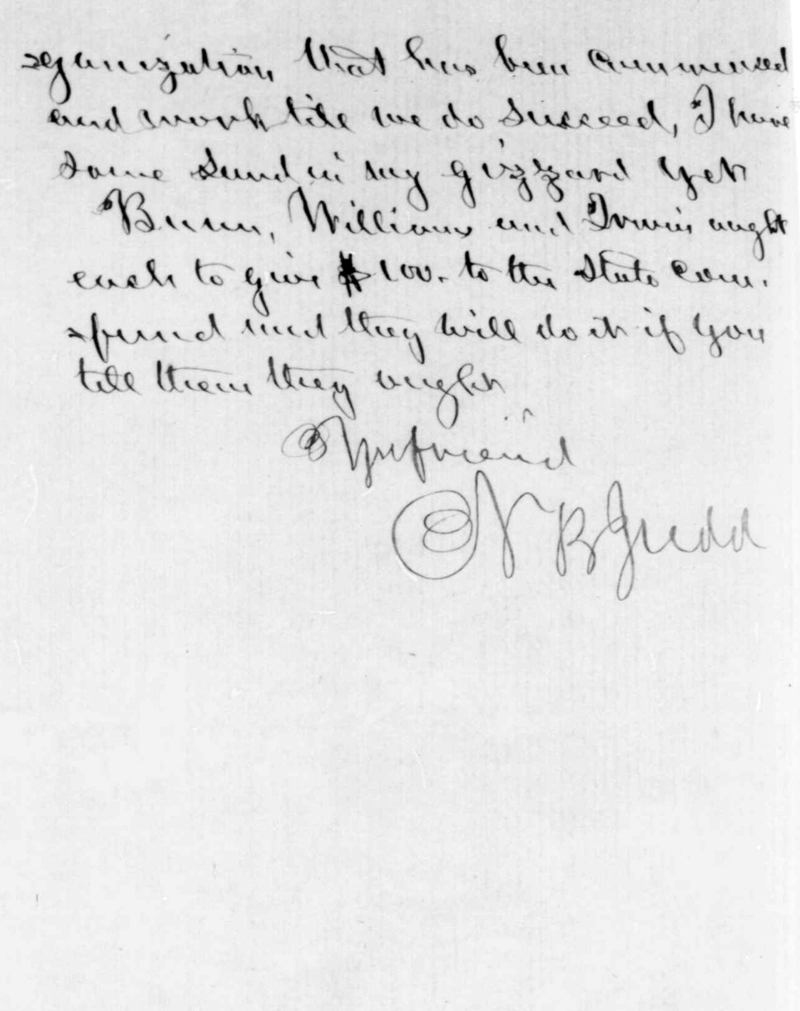 =ganization that has been commenced
and work till we do succeed, I have
some sand in my gizzard yet
Bunn, Williams and Irwin ought
each to give $100. to the State Com.
=fund and they will do it if you
tell them they ought
Yr friend
N B Judd